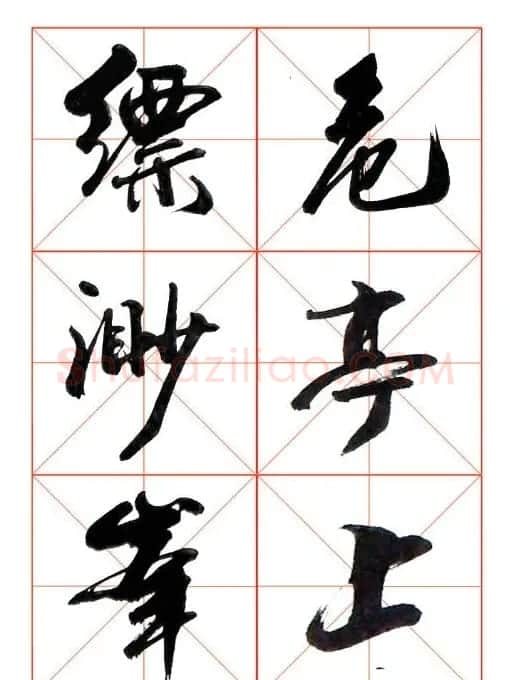 危亭上
缥渺峯
Shufaziliao.COM